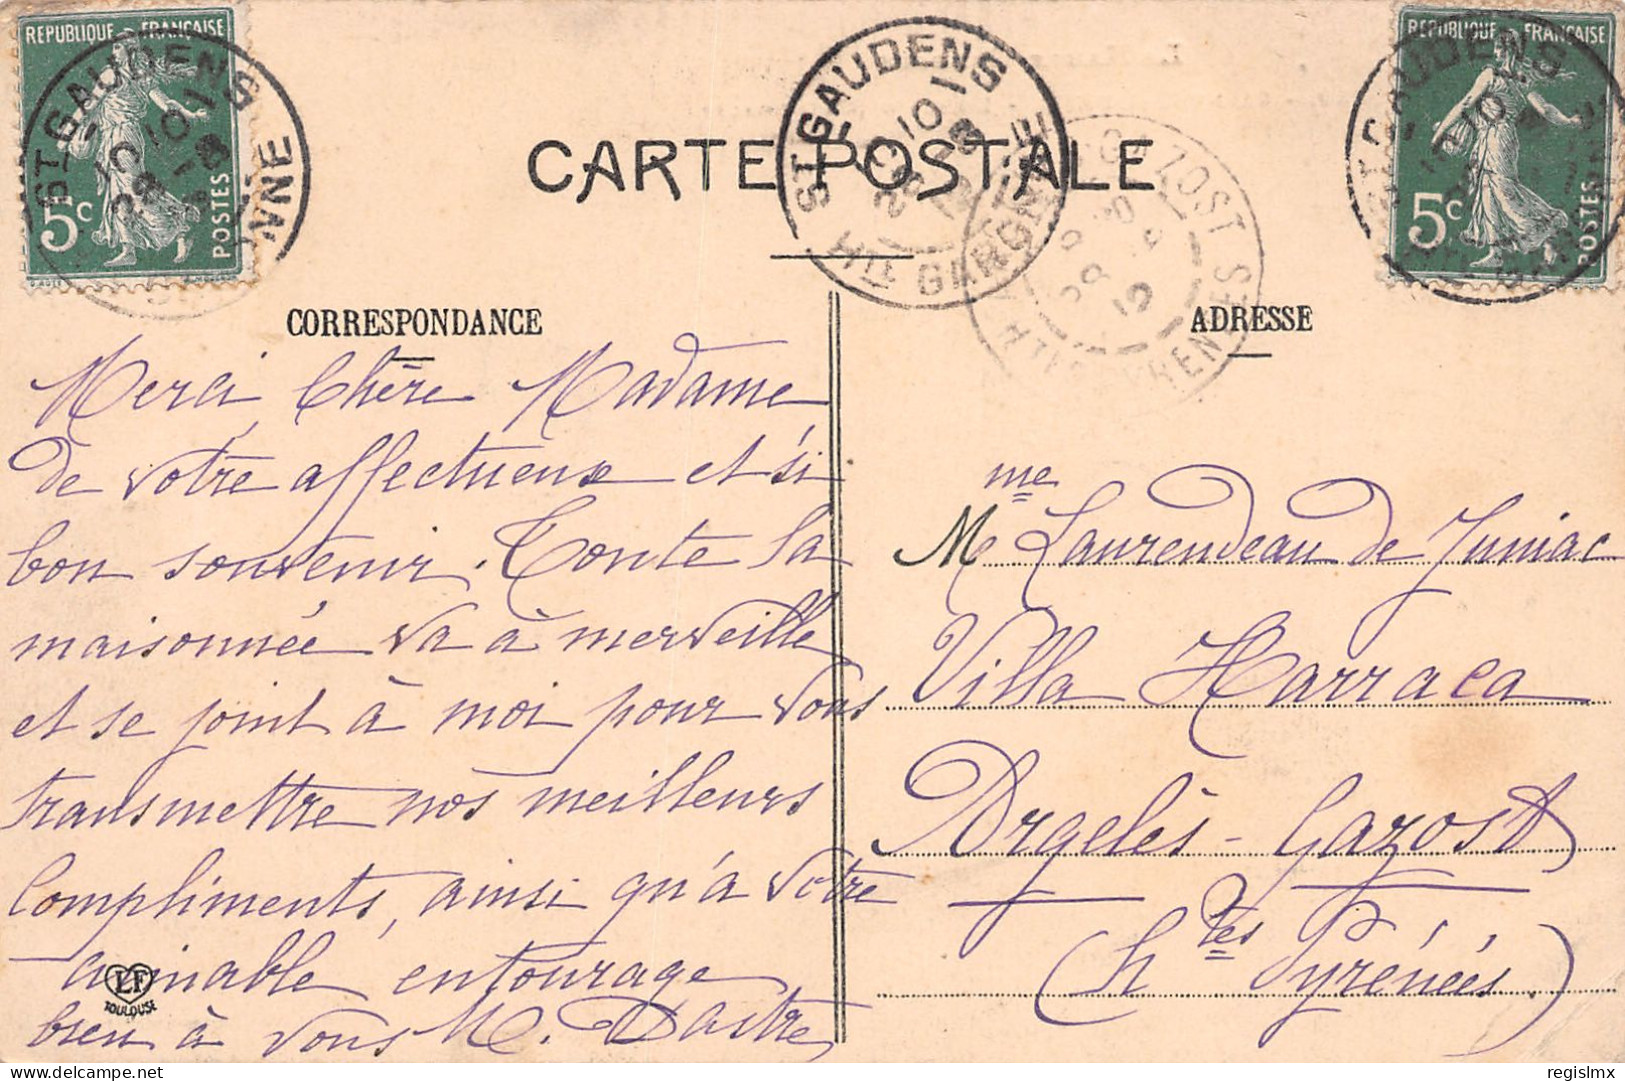 REPUBLIQUE FRANÇAISE
5c
POSTES
ST GAUDENS
ST GAUDENS
10 10
Hte GARONNE
ARGELÈS-GAZOST
Htes PYRENEES
REPUBLIQUE FRANÇAISE
5c
POSTES
ST GAUDENS
CARTE POSTALE
CORRESPONDANCE
Merci, Chère Madame
de votre affectueux et si
bon souvenir. Toute la
maisonnée va à merveille
et se joint à moi pour vous
transmettre nos meilleurs
compliments, ainsi qu'à votre
aimable entourage
bien à vous M. Dastre
LF
TOULOUSE
ADRESSE
Mme Laurendeau de Juniac
Villa Harraca
Argelès-Gazost
(Htes Pyrénées)
regislmx